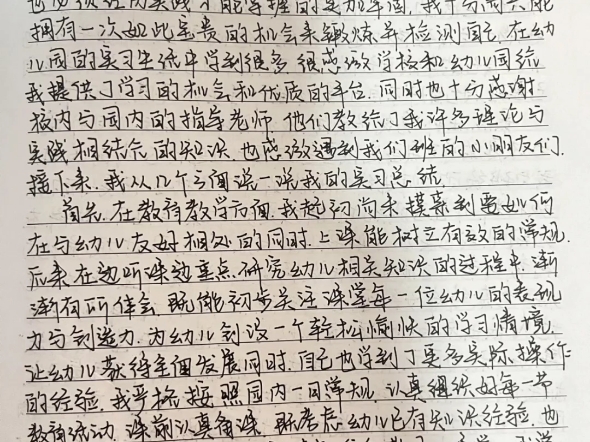 拥有一次如此宝贵的机会来锻炼并检测自己.在幼
儿园的实习生活中学到很多.很感激学校和幼儿园给
我提供了学习的机会和优质的平台.同时也十分感谢
校内与园内的指导老师.他们教给了我许多理论与
实践相结合的知识.也感激遇到我们班的小朋友们.
接下来.我从几个方面说一说我的实习总结.
首先.在教育教学方面.我起初尚未摸索到要如何
在与幼儿友好相处的同时.上课能树立有效的常规.
后来在边听课边重点研究幼儿相关知识的过程中.渐
渐有所体会.既能初步关注课堂每一位幼儿的表现
力与创造力.为幼儿创设一个轻松愉快的学习情境.
让幼儿获得全面发展同时.自己也学到了更多实际操作
的经验.我严格按照园内一日常规.认真组织好每一节
教育活动.课前认真备课.既考虑幼儿已有知识经验.也